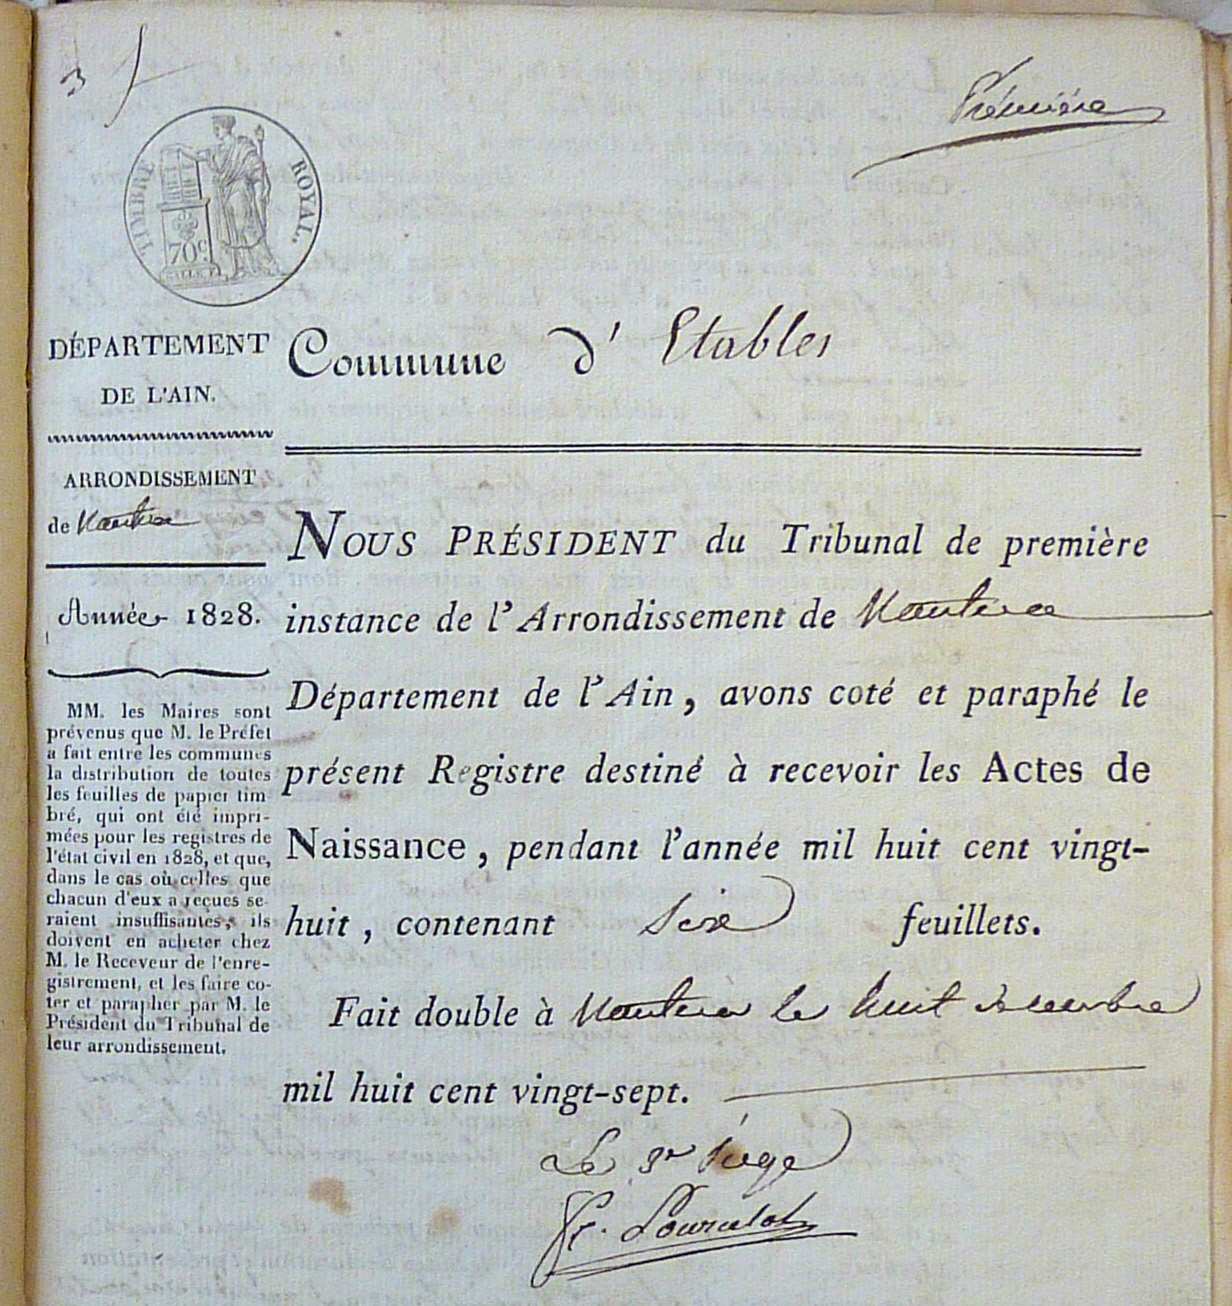 3
Première
TIMBRE ROYAL.
70 c.
DÉPARTEMENT
DE L'AIN.
ARRONDISSEMENT
de Nantua
Année 1828.
MM. les Maires sont
prévenus que M. le Préfet
a fait entre les communes
la distribution de toutes
les feuilles de papier tim-
bré, qui ont été impri-
mées pour les registres de
l'état civil en 1828, et que,
dans le cas où celles que
chacun d'eux a reçues se-
raient insuffisantes, ils
doivent en acheter chez
M. le Receveur de l'enre-
gistrement, et les faire co-
ter et parapher par M. le
Président du Tribunal de
leur arrondissement.
Commune d'Etables
NOUS PRÉSIDENT du Tribunal de première
instance de l'Arrondissement de Nantua
Département de l'Ain, avons coté et paraphé le
présent Registre destiné à recevoir les Actes de
Naissance, pendant l'année mil huit cent vingt-
huit, contenant Six feuillets.
Fait double à Nantua le huit décembre
mil huit cent vingt-sept.
Le 3e Juge